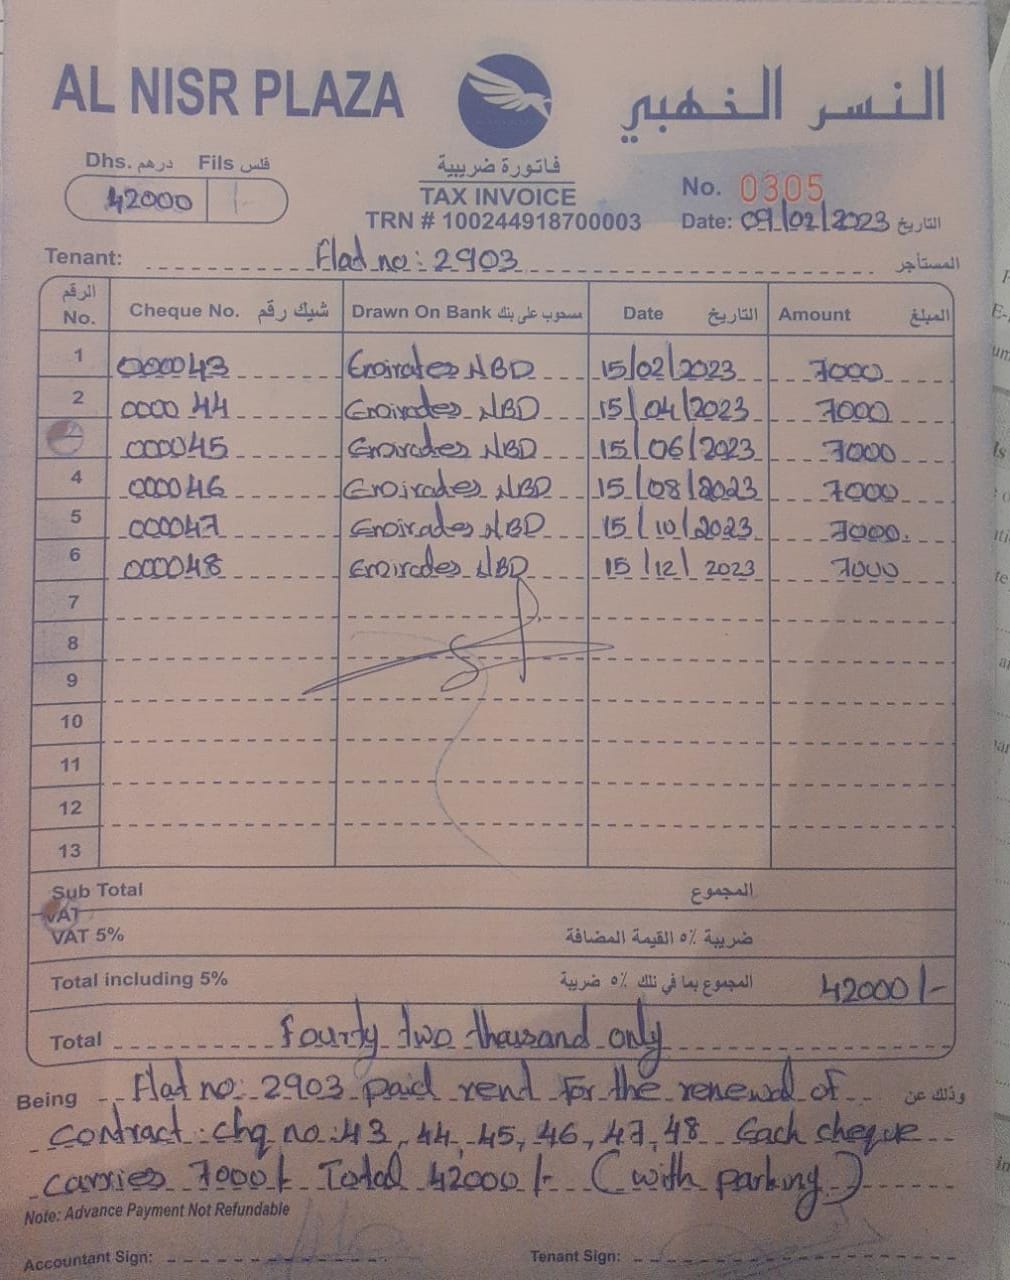 AL NISR PLAZA
النسر الذهبي
Dhs. درهم Fils فلس
42000 | -
فاتورة ضريبية
TAX INVOICE
TRN # 100244918700003
No. 0305
Date: 09/02/2023 التاريخ
Tenant: Flat no: 2903 المستأجر
الرقم No. | Cheque No. شيك رقم | Drawn On Bank مسحوب على بنك | Date التاريخ | Amount المبلغ
1 000043 Emirates NBD 15/02/2023 7000
2 000044 Emirates NBD 15/04/2023 7000
000045 Emirates NBD 15/06/2023 7000
4 000046 Emirates NBD 15/08/2023 7000
5 000047 Emirates NBD 15/10/2023 7000.
6 000048 Emirates NBD 15/12/2023 7000
7
8
9
10
11
12
13
Sub Total المجموع
VAT
VAT 5% ضريبة ٥٪ القيمة المضافة
Total including 5% المجموع بما في ذلك ٥٪ ضريبة 42000/-
Total fourty two thousand only
Being Flat no: 2903 paid rent for the renewal of وذلك عن
contract. chq no: 43, 44, 45, 46, 47, 48 Each cheque
carries 7000/- Total 42000/- (with parking)
Note: Advance Payment Not Refundable
Accountant Sign: Tenant Sign: